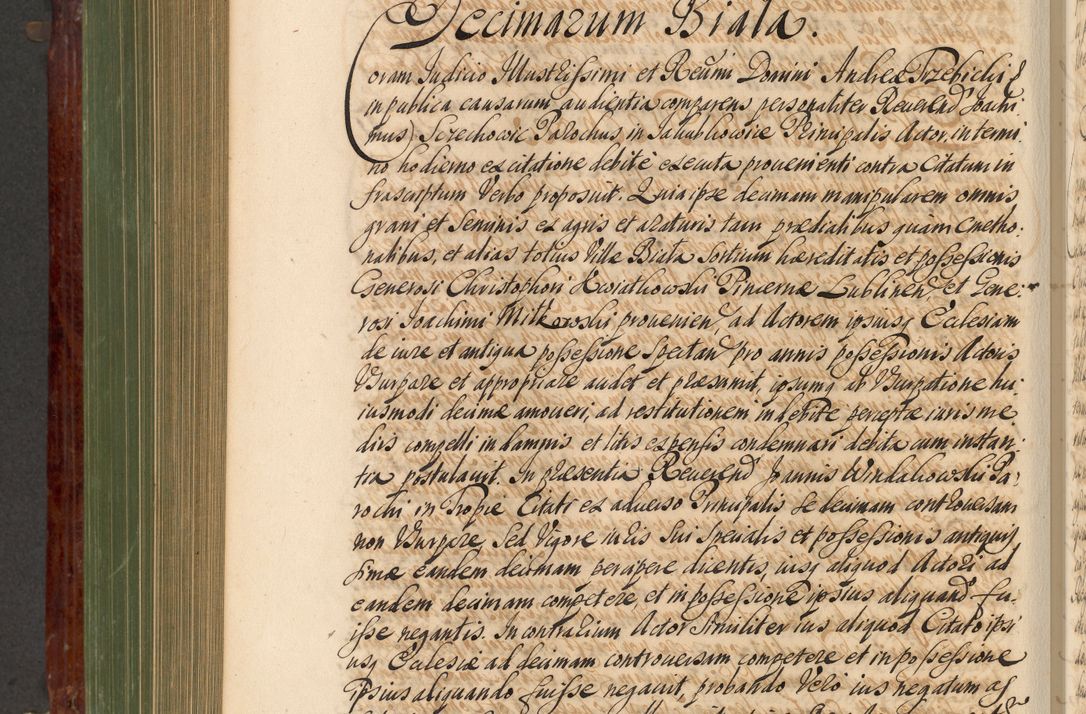 Decimarum Biała.
Coram Judicio Illustrissimi et Reũmi Domini Andreæ Trzebicki &
in publica causarum audientia comparens personaliter Reverend Joachi-
mus Parochus in Jakubkowice Principalis Actor, in termi-
no hodierno ex citatione debite executa provenienti contra Citatum in
frascriptum Verbo proposuit. Quia ipse decimam manipularem omnis
grani et Seminis ex agris et araturis tam prædialibus quàm Cmetho-
nalibus, et alias totius Villæ Biała Sortium hæreditatis et possessionis
Generosi Christophori Kwiatkowski Pincernæ Lublinen, et Gene-
rosi Joachimi provenien, ad Actorem ipsiusq Ecclesiam
de iure et antiqua possessione Spectan pro annis possessionis Actoris
Usurpare et appropriare audet et præsumit, ipsumq ab Usurpatione hu-
iusmodi decimæ amoveri, ad restitutionem indebite perceptæ iuris me
diis compelli in damnis et litis expensis condemnari debita cum instan-
tia postulavit. In præsentia Reverend Joannis Pa-
rochi in Tropie Citati ex adverso Principalis Se decimam controversam
non Usurpare, Sed Vigore iuris Sui Specialis et possessionis antiquis
simæ eandem decimam percipere dicentis, iusq aliquod Actori ad
eandem decimam competere, et in possessione ipsius aliquand fu-
isse negantis. In contrarium Actor Similiter ius aliquod Citato ipsi
usq Ecclesiæ ad decimam controversam competere et in possessione
ipsius aliquando fuisse negavit, probando Vero ius negatum as